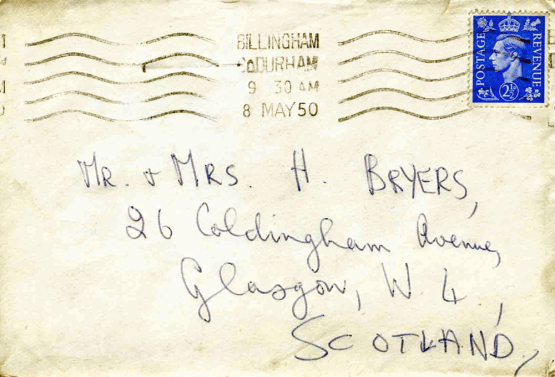 BILLINGHAM
CO DURHAM
9 30 AM
8 MAY 50
POSTAGE
REVENUE
2½
Mr. & MRS. H. BRYERS,
26 Coldingham Avenue,
Glasgow, W. 4.,
SCOTLAND,